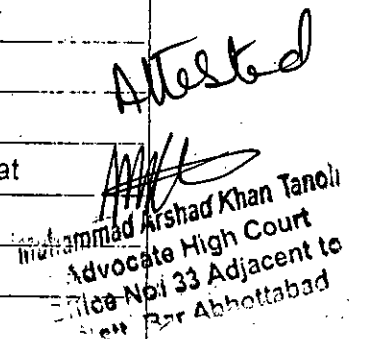 Attested
at
Muhammad Arshad Khan Tanoli
Advocate High Court
Office No: 33 Adjacent to
Bar Abbottabad